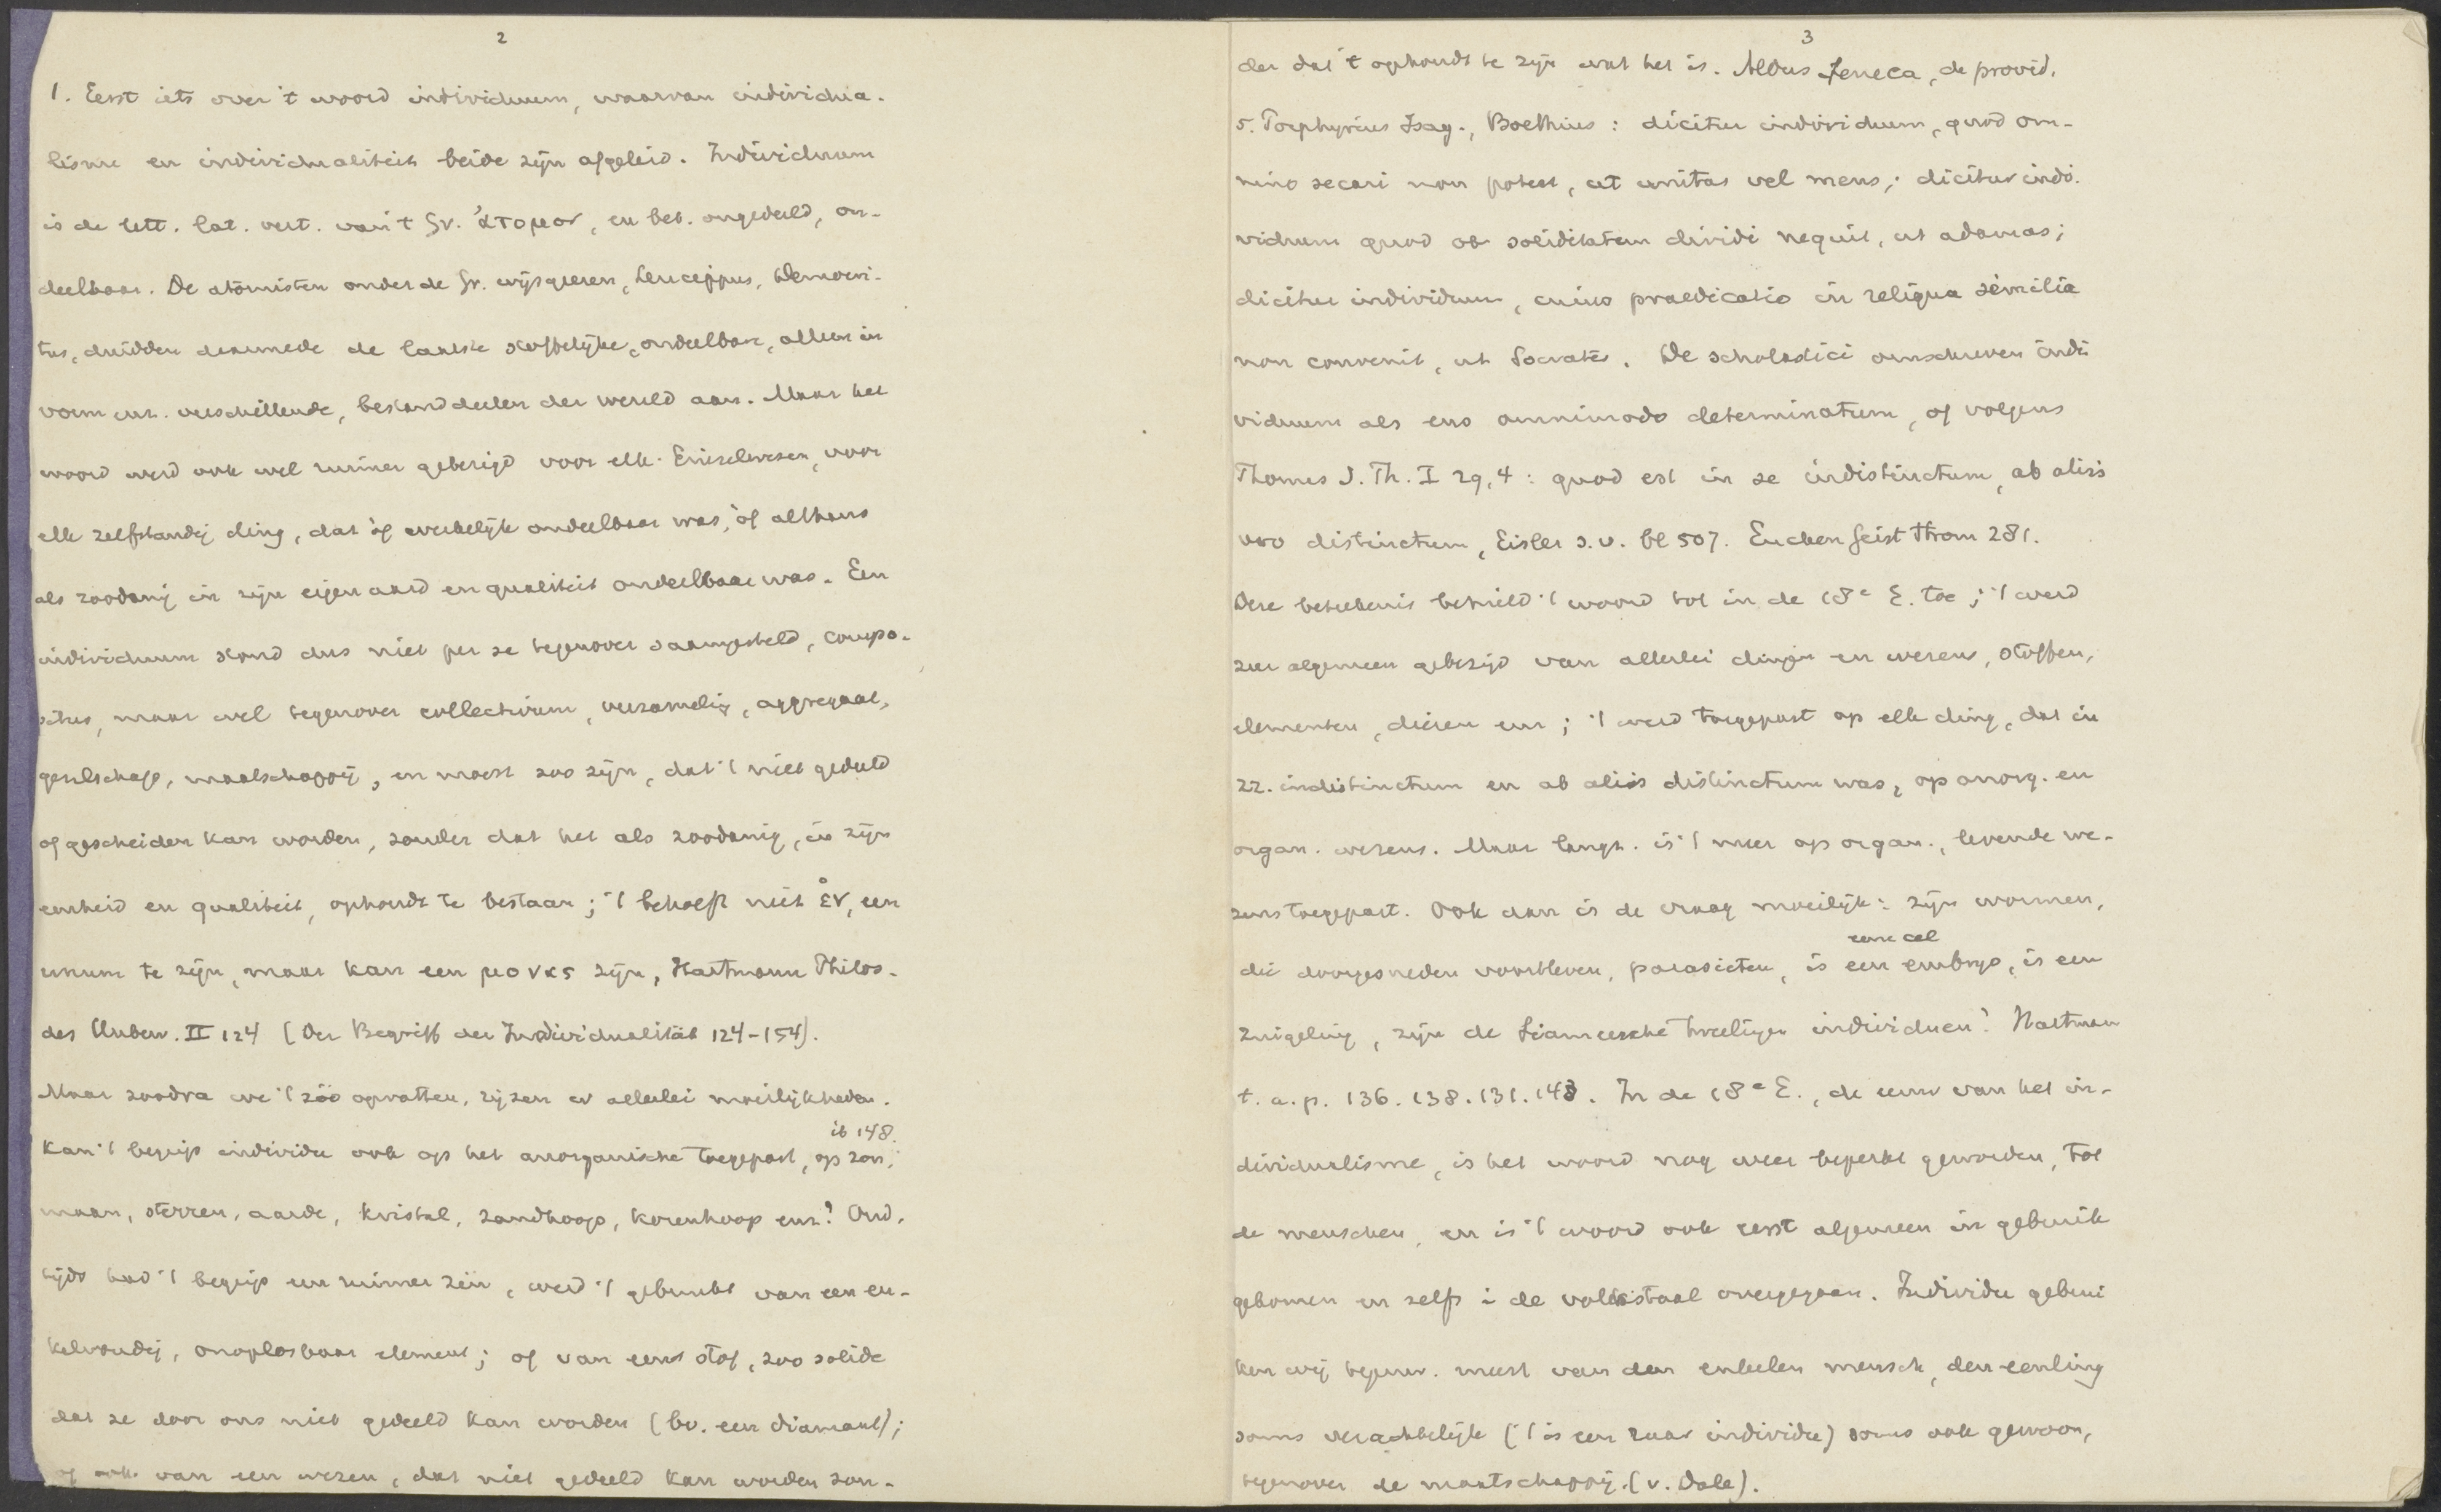 2
1. Eerst iets over 't woord individuum, waarvan individua-
lisme en individualiteit beide zijn afgeleid. Individuum
is de lett. lat. vert. van 't Gr. ἄτομον, en bet. ongedeeld, on-
deelbaar. De atomisten onder de Gr. wijsgeeren, Leucippus, Democri-
tus, duidden daarmede de laatste stoffelijke, ondeelbare, alleen in
vorm enz. verschillende, bestanddeelen der wereld aan. Maar het
woord werd ook wel ruimer gebezigd voor elk Einzelwesen, voor
elk zelfstandig ding, dat òf werkelijk ondeelbaar was, òf althans
als zoodanig in zijn eigen aard en qualiteit ondeelbaar was. Een
individuum stond dus niet per se tegenover saamgesteld, compo-
situs, maar wel tegenover collectivum, verzameling, aggregaat,
gezelschap, maatschappij, en moest zoo zijn, dat 't niet gedeeld
of gescheiden kan worden, zonder dat het als zoodanig, in zijn
eenheid en qualiteit, ophoudt te bestaan; 't behoeft niet ἕν, een
unum te zijn, maar kan een μονας zijn, Hartmann Philos.
des Unbew. II 124 (Der Begriff der Individualität 124-154).
Maar zoodra we 't zóó opvatten, rijzen er allerlei moeilijkheden.
ib 148.
Kan 't begrip individu ook op het anorganische toegepast, op zon,
maan, sterren, aarde, kristal, zandhoop, korenhoop enz.? Oud-
tijds had 't begrip een ruimer zin, werd 't gebruikt van een en-
kelvoudig, onoplosbaar element; of van eene stof, zoo solide
dat ze door ons niet gedeeld kan worden (bv. een diamant);
of ook van een wezen, dat niet gedeeld kan worden zon-
3
der dat 't ophoudt te zijn wat het is. Aldus Seneca, de provid.
5. Porphyrius Isag., Boethius: dicitur individuum, quod om-
nino secari non potest, ut unitas vel mens; dicitur indi-
viduum quod ob soliditatem dividi nequit, ut adamas;
dicitur individuum, cuius praedicatio in reliqua similia
non convenit, ut Socrates. De scholastici omschreven indi
viduum als ens omnimodo determinatum, of volgens
Thomas S. Th. I 29, 4: quod est in se indistinctum, ab aliis
vero distinctum, Eisler s.v. bl 507. Eucken Geist Strom 281.
Deze beteekenis behield 't woord tot in de 18e E. toe; 't werd
zeer algemeen gebezigd van allerlei dingen en wezens, stoffen,
elementen, dieren enz; 't werd toegepast op elk ding, dat in
zz. indistinctum en ab aliis distinctum was, op anorg. en
organ. wezens. Maar langz. is 't meer op organ., levende we-
zens toegepast. Ook dan is de vraag moeilijk: zijn wormen,
eene cel
die doorgesneden voortleven, parasieten, is een embryo, is een
zuigeling, zijn de Siameesche tweelingen individuen? Hartman
t. a. p. 136. 138. 131. 143. In de 18e E., de eeuw van het in-
dividualisme, is het woord nog weer beperkt geworden, tot
de menschen, en is 't woord ook eerst algemeen in gebruik
gekomen en zelfs i de volkstaal overgegaan. Individu gebrui
ken wij tegenw. meest van den enkelen mensch, den eenling
soms verachtelijk ('t is een raar individu) soms ook gewoon,
tegenover de maatschappij. (v. Dale).